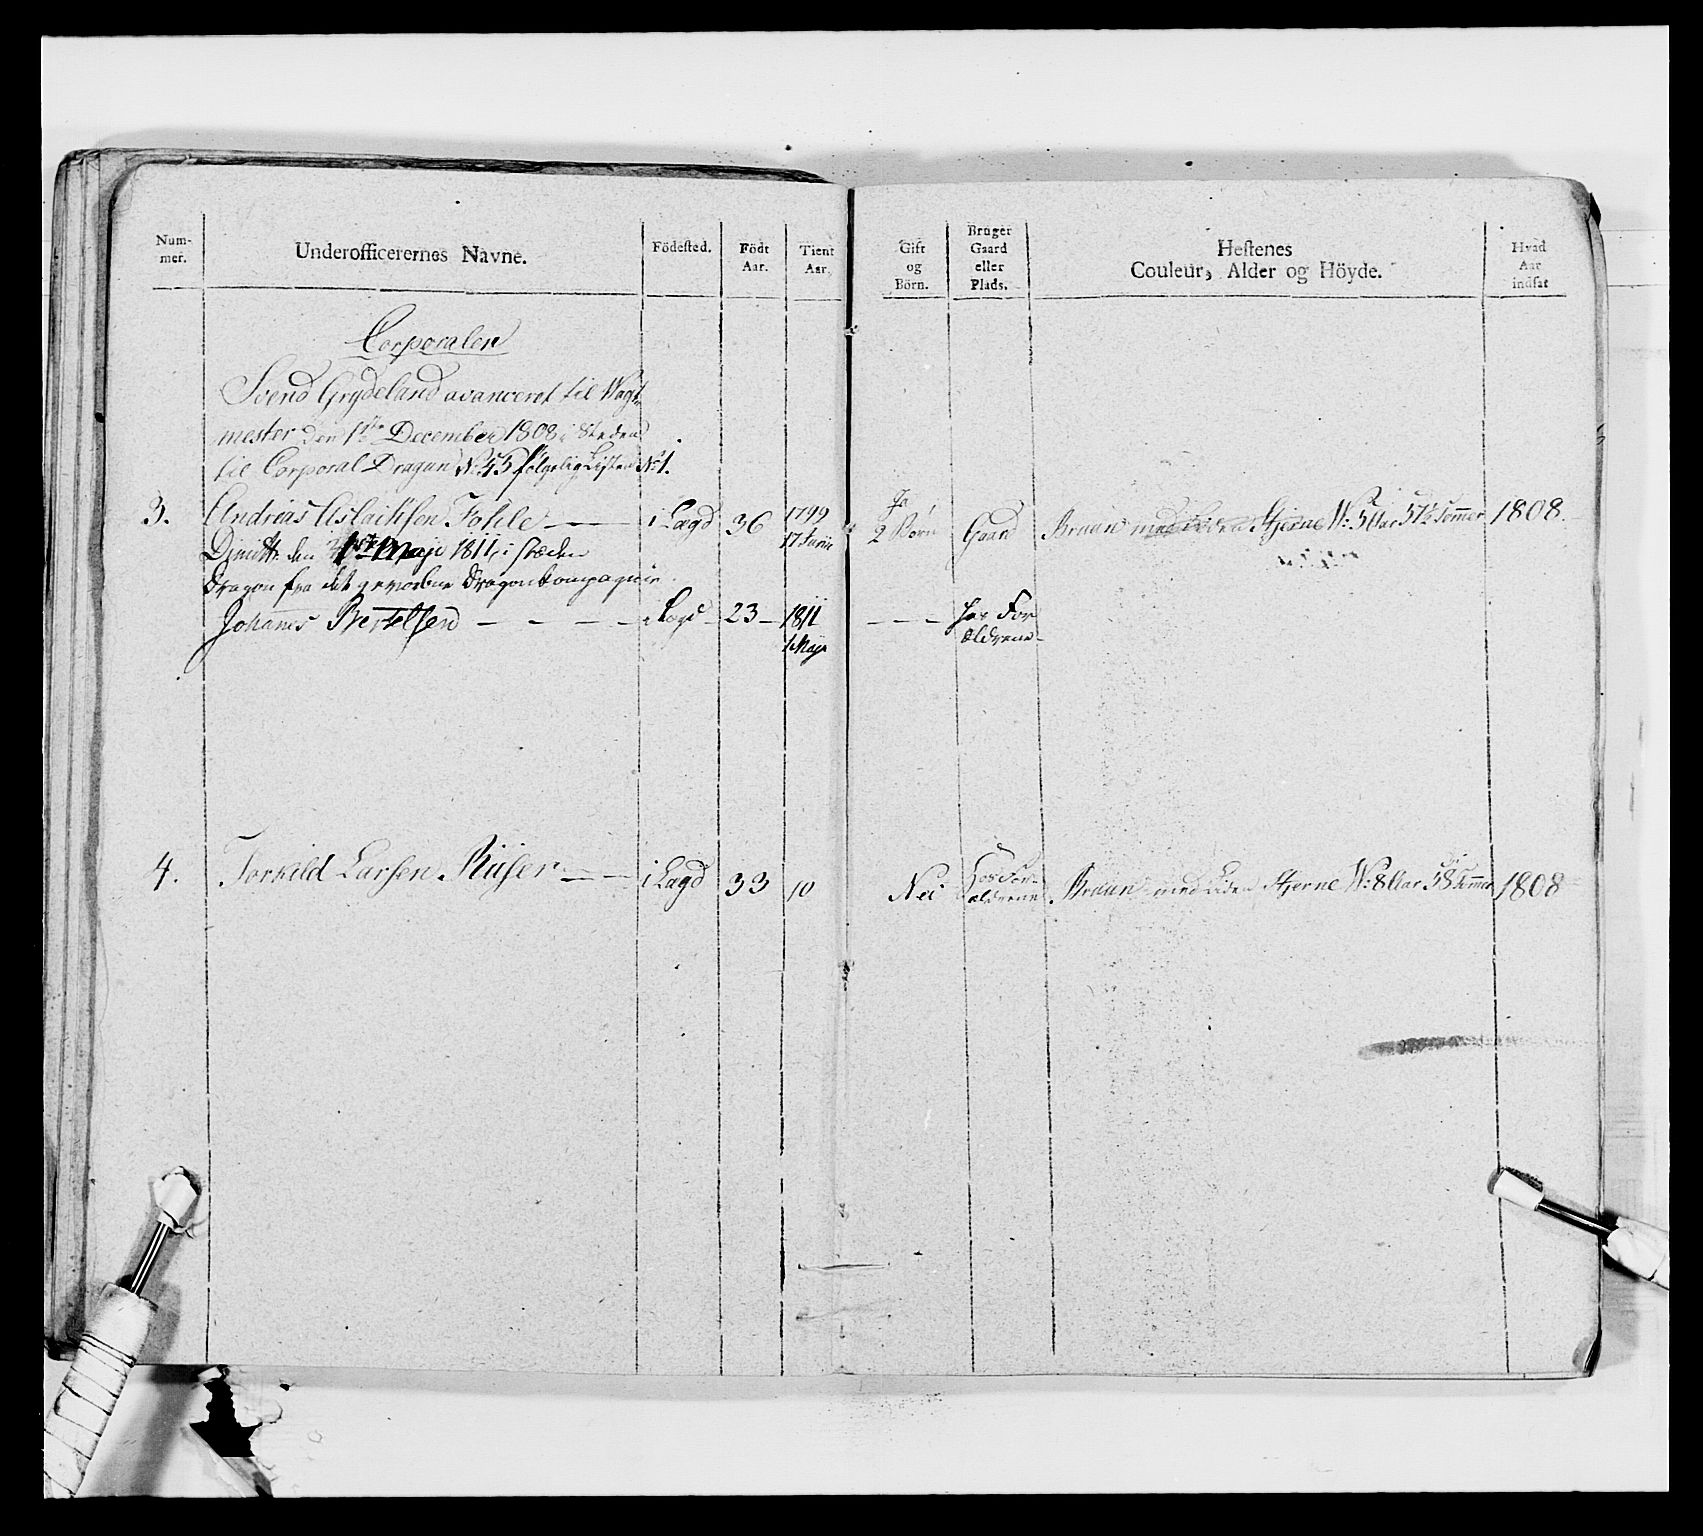 Num-
mer.
Underofficerernes Navne.
Födested.
Födt
Aar.
Tient
Aar.
Gift
og
Börn.
Bruger
Gaard
eller
Plads.
Hestenes
Couleur, Alder og Höyde.
Hvad
Aar
indsat
Corporalen
Svend Grydeland avanceret til Wagt
mester den 1ste December 1808 i Steden
til Corporal Dragun No 45 følgelig Listen No 1.
3. Andreas Aslachsen Fohle i Lægd 36 1799 17 Junii Ja 2 Børn Gaard Bruun med Liden Stjerne W: 5 Aar 57½ Tommer 1808.
Dimitt: den 1ste Maji 1811, i stæden
Dragon fra det gevorbne Dragon Compagnie.
Johannes Bertelsen i Lægd 23 1811 1 Maji hos For
ældrene
4. Torkild Larsen Riiser i Lægd 33 10 Nei Hos For-
ældrene Bruun med Liden Stjerne W: 8 Aar 58 Tommer 1808